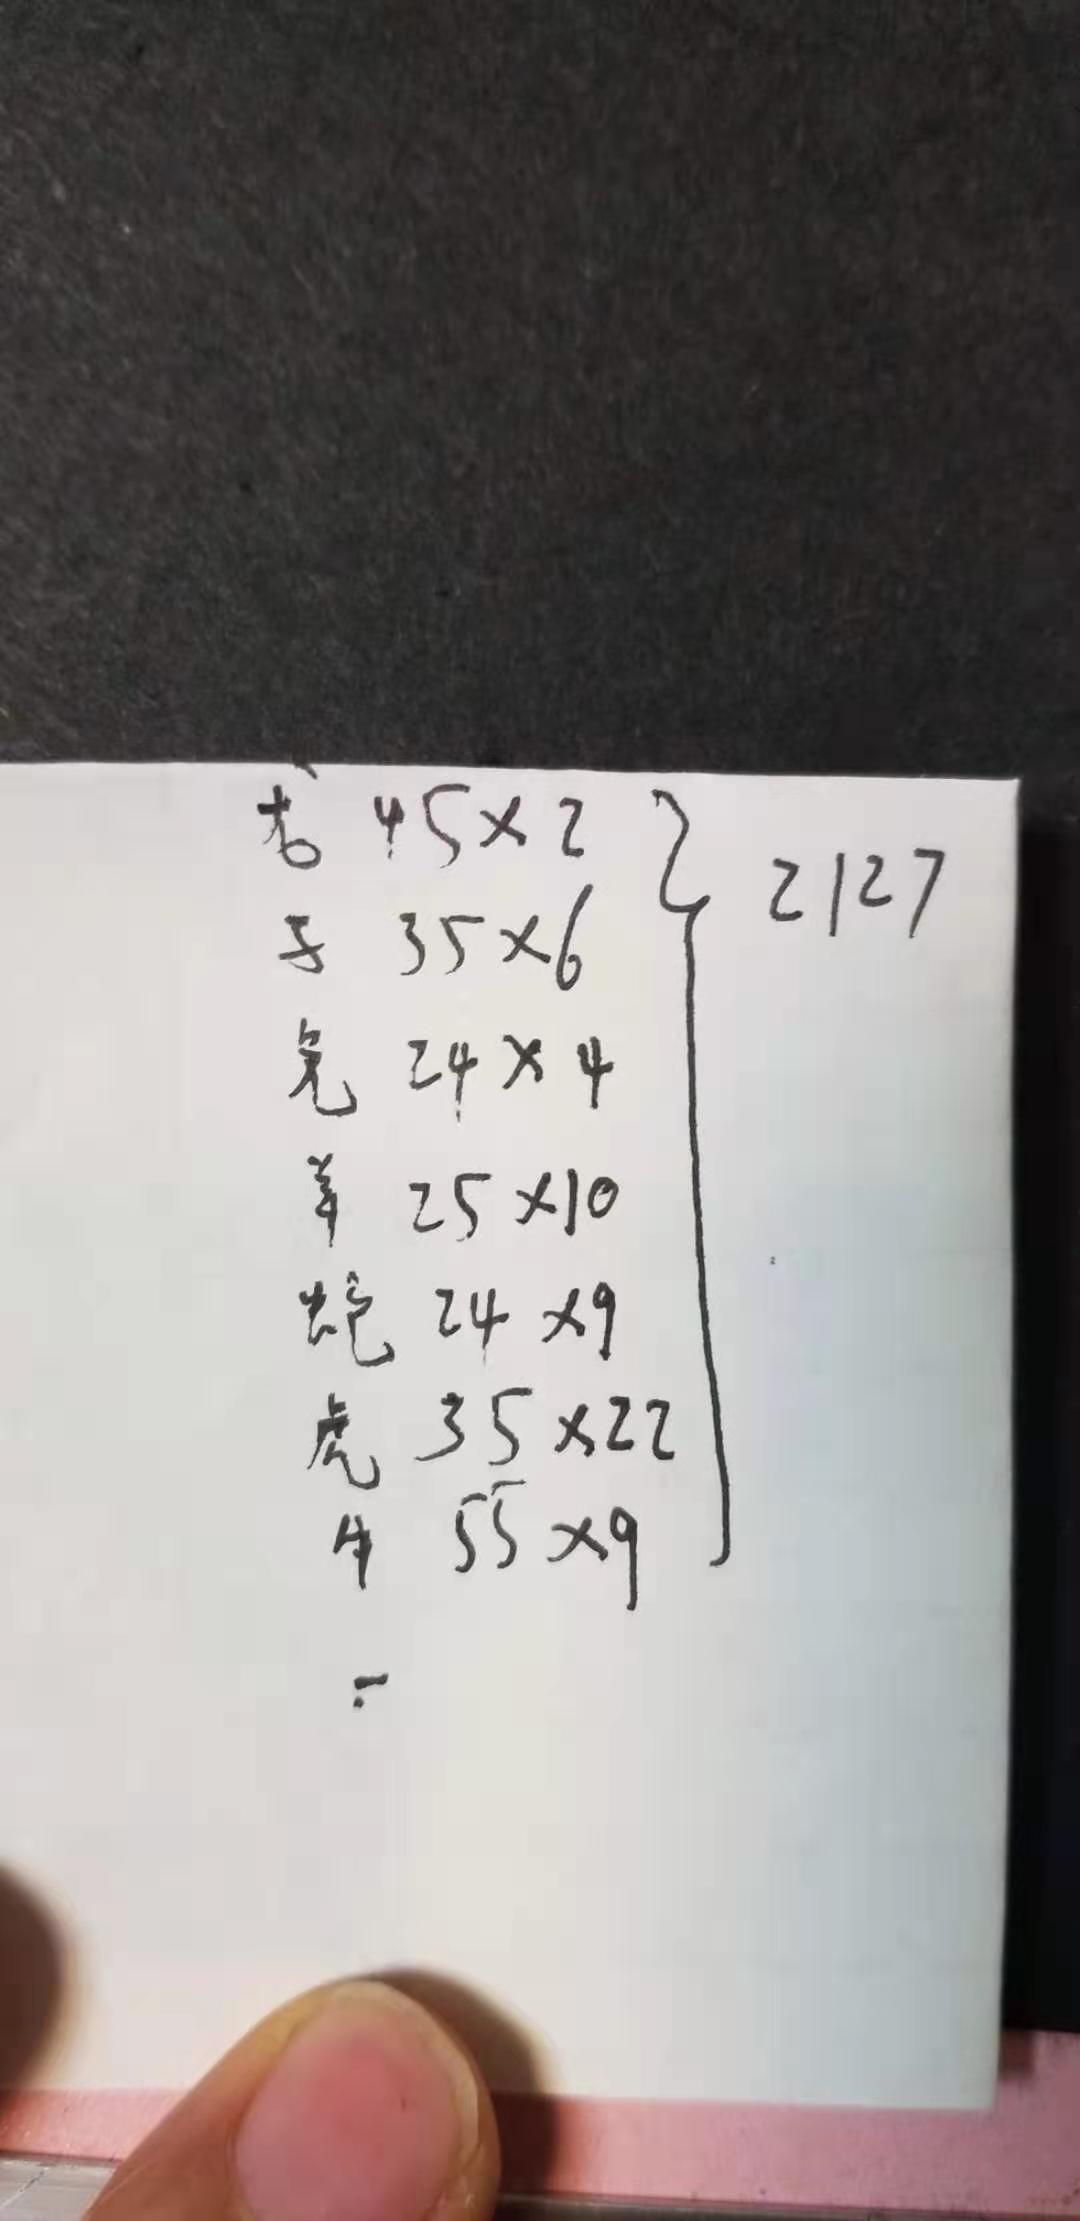 龙 45×2
马 35×6
兔 24×4
羊 25×10
蛇 24×9
虎 35×22
牛 55×9
2127